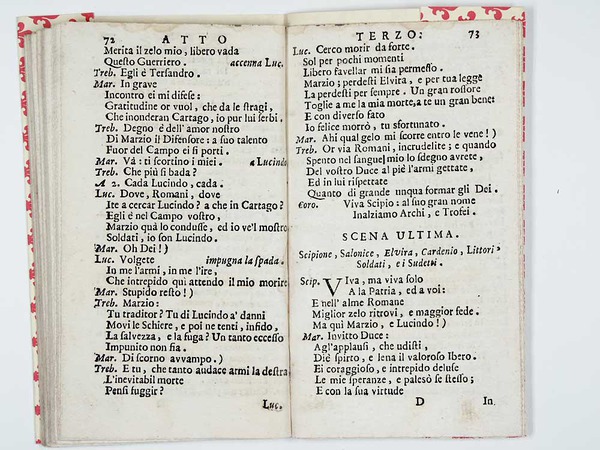 72 ATTO
Merita il zelo mio, libero vada
Questo Guerriero. accenna Luc.
Treb. Egli è Tersandro.
Mar. In grave
Incontro ei mi difese:
Gratitudine or vuol, che da le stragi,
Che inonderan Cartago, io pur lui serbi.
Treb. Degno è dell'amor nostro
Di Marzio il Difensore: a suo talento
Fuor del Campo ei si porti.
Mar. Và: ti scortino i miei. a Lucindo
Treb. Che più si bada?
A 2. Cada Lucindo, cada.
Luc. Dove, Romani, dove
Ite a cercar Lucindo? a che in Cartago?
Egli è nel Campo vostro,
Marzio quà lo condusse, ed io ve'l mostro
Soldati, io son Lucindo.
Mar. Oh Dei!)
Luc. Volgete impugna la spada.
In me l'armi, in me l'ire,
Che intrepido qui attendo il mio morire
Mar. Stupido resto!)
Treb. Marzio:
Tu traditor? Tu di Lucindo a' danni
Movi le Schiere, e poi ne tenti, infido,
La salvezza, e la fuga? Un tanto eccesso
Impunito non fia.
Mar. Di scorno avvampo.)
Treb. E tu, che tanto audace armi la destra
L'inevitabil morte
Pensi fuggir?
Luc.
TERZO. 73
Luc. Cerco morir da forte.
Sol per pochi momenti
Libero favellar mi sia permesso.
Marzio; perdesti Elvira, e per tua legge
La perdesti per sempre. Un gran rossore
Toglie a me la mia morte, a te un gran bene:
E con diverso fato
Io felice morrò, tu sfortunato.
Mar. Ahi qual gelo mi scorre entro le vene!)
Treb. Or via Romani, incrudelite; e quando
Spento nel sangue mio lo sdegno avrete,
Del vostro Duce al piè l'armi gettate,
Ed in lui rispettate
Quanto di grande unqua formar gli Dei.
Coro. Viva Scipio: al suo gran nome
Inalziamo Archi, e Trofei.
SCENA ULTIMA.
Scipione, Salonice, Elvira, Cardenio, Littori,
Soldati, e i Sudetti.
Scip. VIva, ma viva solo
A la Patria, ed a voi:
E nell'alme Romane
Miglior zelo ritrovi, e maggior fede.
Ma qui Marzio, e Lucindo!)
Mar. Invitto Duce:
Agl'applausi, che udisti,
Diè spirto, e lena il valoroso Ibero.
Ei coraggioso, e intrepido deluse
Le mie speranze, e palesò se stesso;
E con la sua virtude
D In